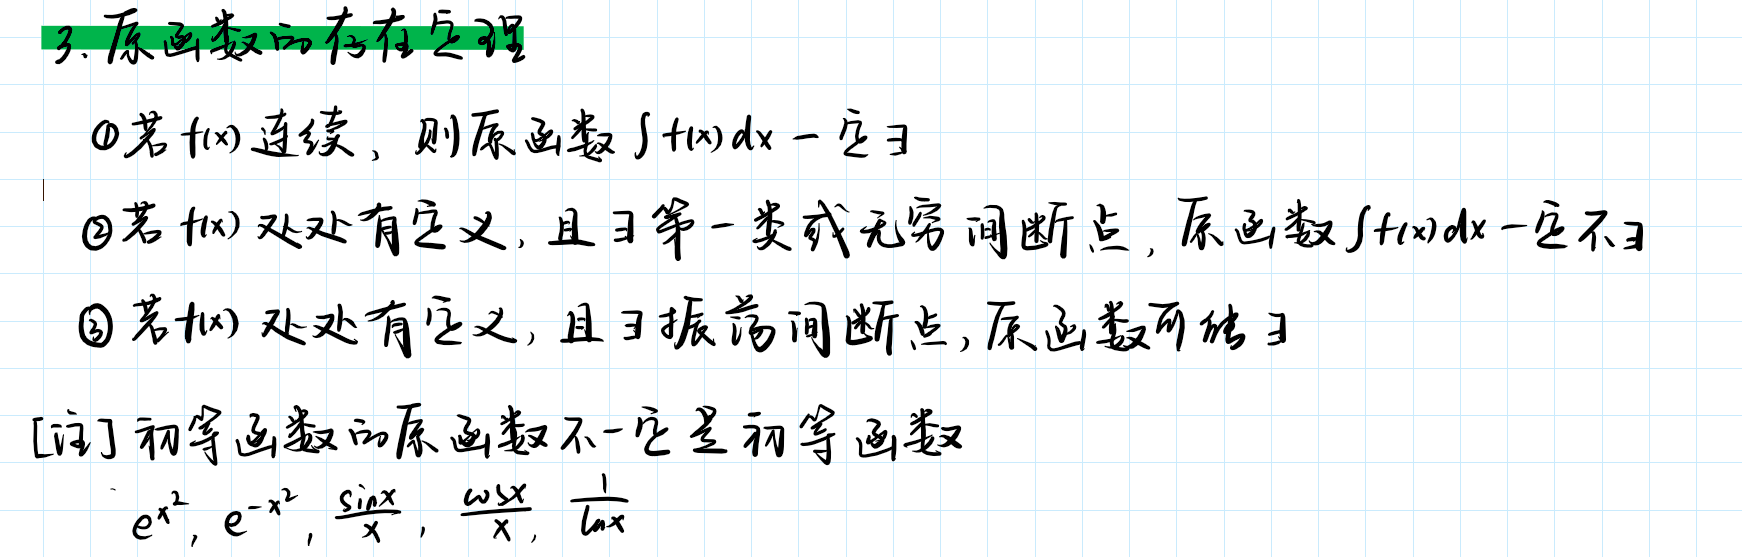 3. 原函数的存在定理
①若 f(x) 连续、则原函数 ∫f(x)dx 一定∃
②若 f(x) 处处有定义, 且∃第一类或无穷间断点, 原函数∫f(x)dx一定不∃
③若f(x) 处处有定义, 且∃振荡间断点, 原函数可能∃
[注] 初等函数的原函数不一定是初等函数
e^{x^2}, e^{-x^2}, \frac{sinx}{x}, \frac{cosx}{x}, \frac{1}{lnx}